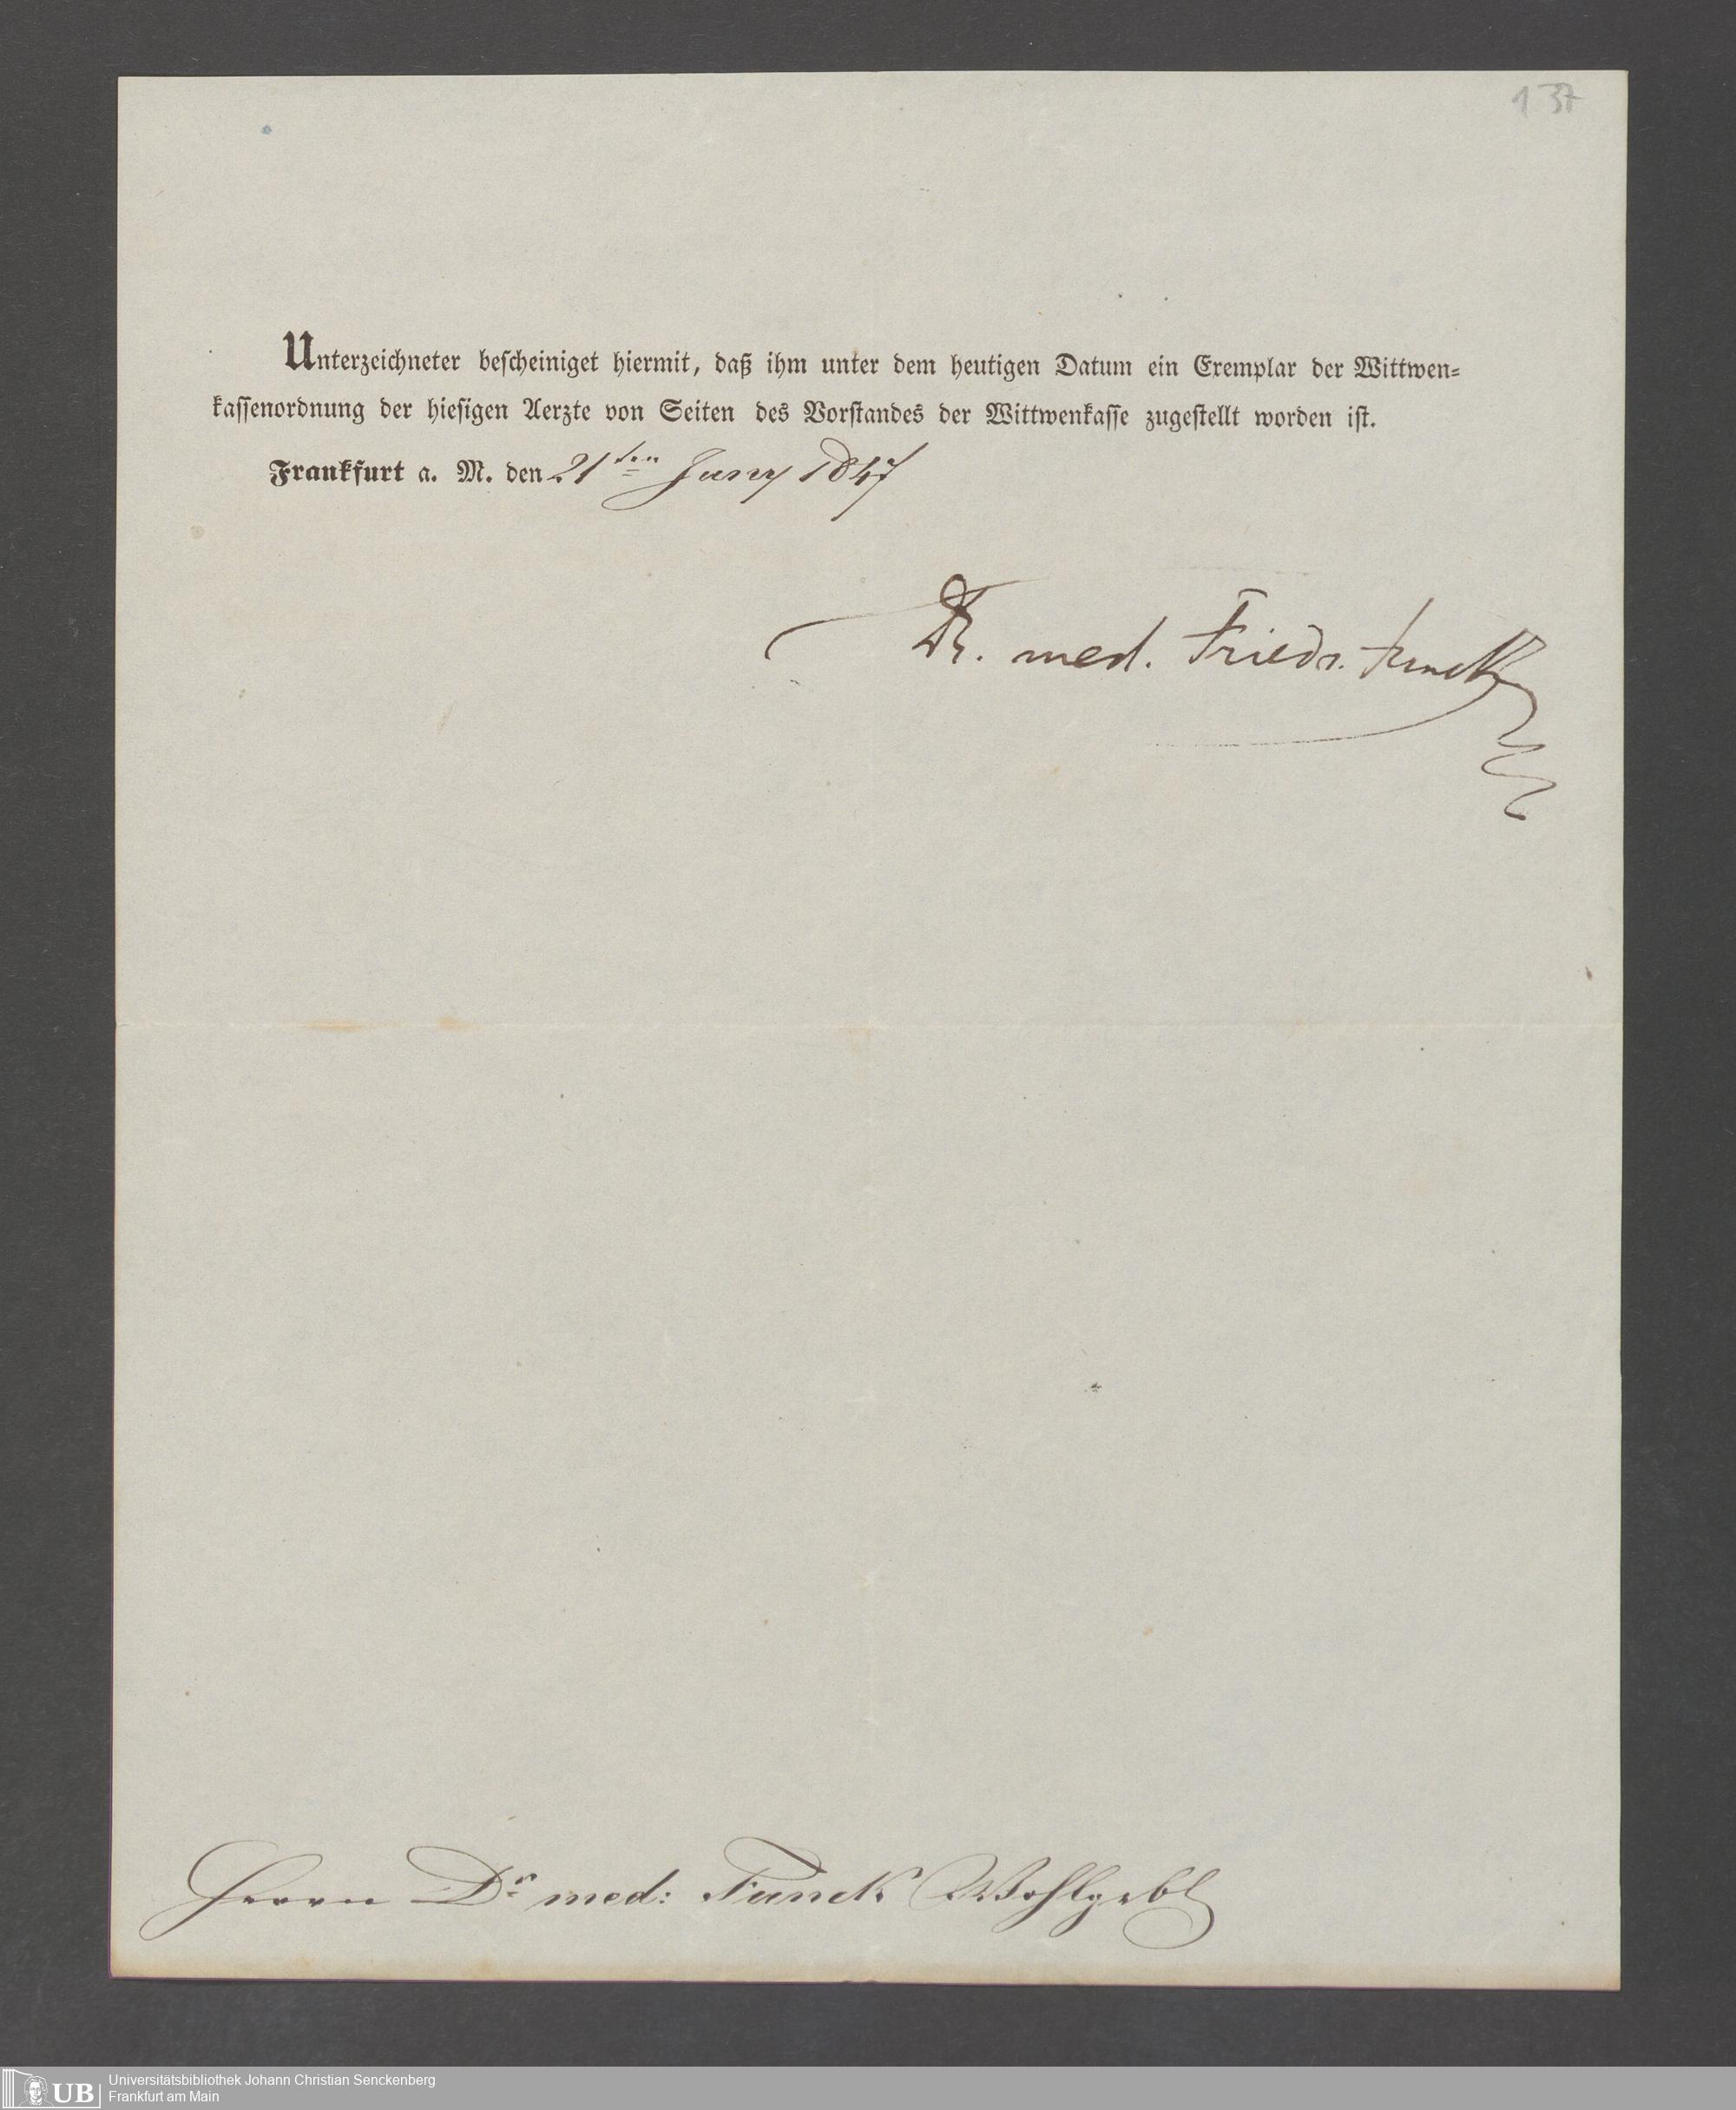 137
Unterzeichneter bescheiniget hiermit, daß ihm unter dem heutigen Datum ein Exemplar der Wittwen-
kassenordnung der hiesigen Aerzte von Seiten des Vorstandes der Wittwenkasse zugestellt worden ist.
Frankfurt a. M. den 21ten Juny 1847
Dr. med. Friedr. Funck
Herrn Dr. med: Funck Wohlgebl
UB
Universitätsbibliothek Johann Christian Senckenberg
Frankfurt am Main